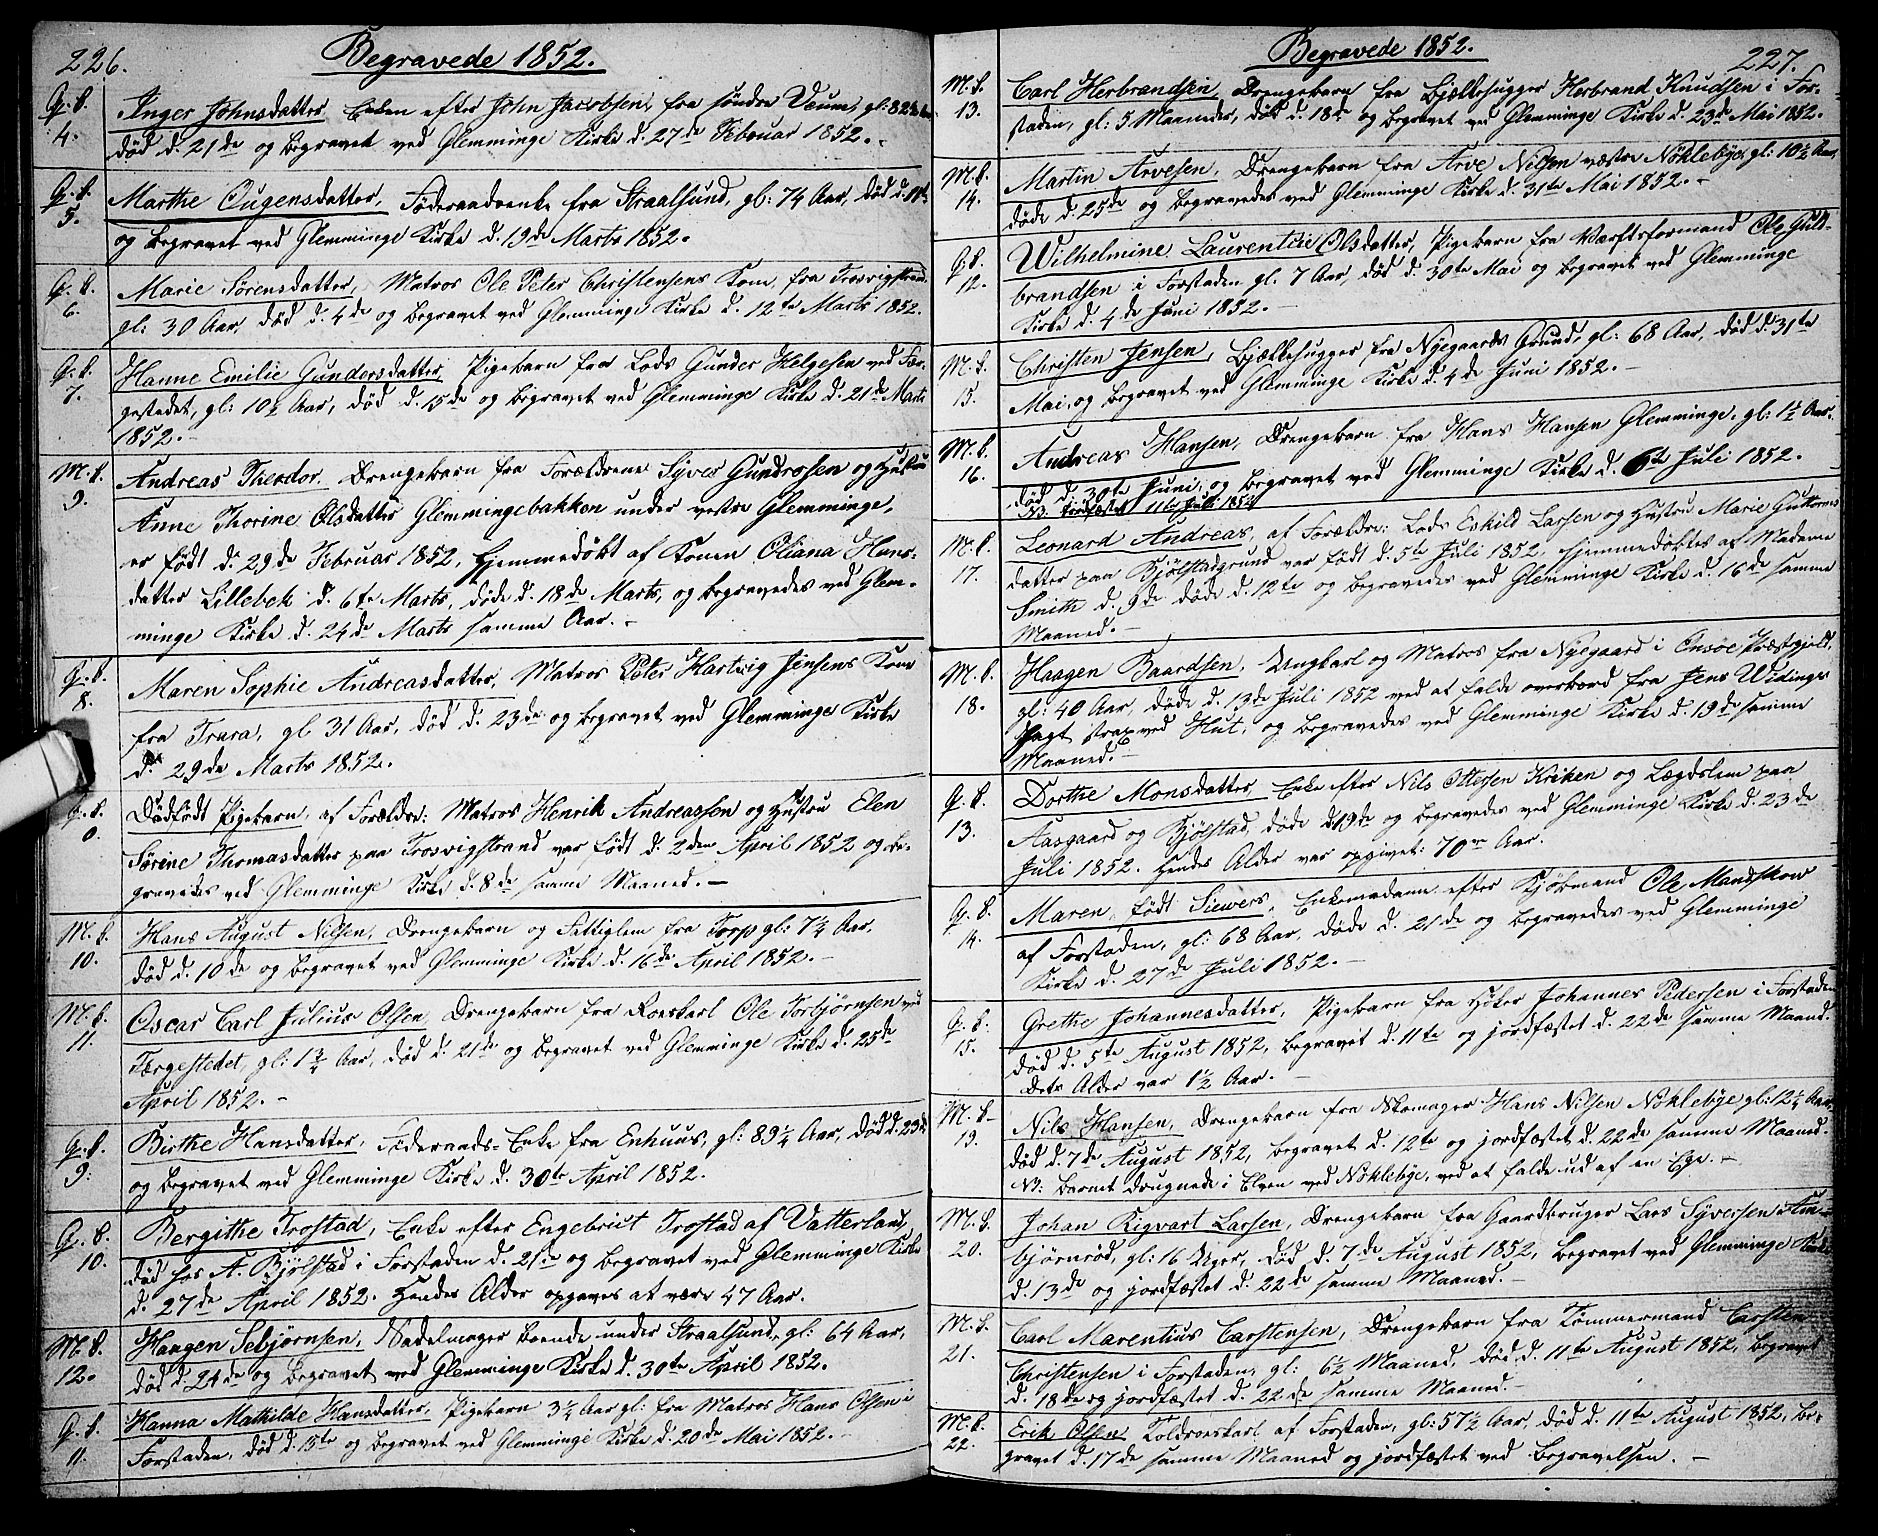 226.
Begravede 1852.
Q. k. 4.
Inger Johnsdatter, Enken efter John Jacobsen, fra søndre Vaum, gl: 82
død d. 21de og begravet ved Glemminge Kirke d. 27de Februar 1852.
Q. k. 5.
Marthe Ougensdatter, Føderaadsenke fra Straalsund, gl: 74 Aar, død d.
og begravet ved Glemminge Kirke d. 19de Marts 1852.
Q. k. 6.
Marie Sørensdatter, Matros Ole Peter Christensens Kone, fra Trosvigstrand,
gl: 30 Aar, død d. 4de og begravet ved Glemminge Kirke d. 12te Marts 1852.
Q. k. 7.
Hanne Emilie Gundersdatter, Pigebarn fra Lods Gunder Helgesen ved Fær-
gestedet, gl: 10½ Aar, død d. 15de og begravet ved Glemminge Kirke d. 21de Marts
1852.
M. k. 9.
Andreas Theodor, Drengebarn fra Forældrene Syver Gundrosen og Hustru
Anne Thorine Olsdatter Glemmingebakken under vestre Glemminge,
er født d. 29de Februar 1852, Hjemmedøbt af Konen Oliana Hans-
datter Lillebek d. 6te Marts, døde d. 18de Marts, og begravedes ved Glem-
minge Kirke d. 24de Marts samme Aar.
Q. k. 8.
Maren Sophie Andreasdatter, Matros Peter Hartvig Jensens Kone
fra Trara, gl 31 Aar, død d. 23de og begravet ved Glemminge Kirke
d. 29de Marts 1852.
Q. k. 0.
Dødfødt Pigebarn, af Forældre: Matros Henrik Andreassen og Hustru Elen
Sørine Thomasdatter paa Trosvigstrand var født d. 2den April 1852 og be-
gravedes ved Glemminge Kirke d. 8de samme Maaned.
M. k. 10.
Hans August Nilsen, Drengebarn og Fattiglem fra Torp gl: 7¼ Aar,
død d. 10de og begravet ved Glemminge Kirke d. 16de April 1852.
M. k. 11.
Oscar Carl Julius Olsen, Drengebarn fra Roerskarl Ole Torbjørnsen ved
Færgestedet, gl: 1¾ Aar, død d. 21de og begravet ved Glemminge Kirke d. 25de
April 1852.
Q. k. 9.
Birthe Hansdatter, Føderaads-Enke fra Enhuus, gl: 89¼ Aar, død d. 23de
og begravet ved Glemminge Kirke d. 30te April 1852.
Q. k. 10.
Bergithe Trostad, Enke efter Engebrict Trostad af Vatterland,
død hos A. Bjølstad i Forstaden d. 21de og begravet ved Glemminge Kirke
d. 27de April 1852. Hendes Alder opgaves at være 47 Aar.
M. k. 12.
Haagen Sebjørnsen, Sadelmager boende under Straalsund, gl: 64 Aar,
død d. 24de og begravet ved Glemminge Kirke d. 30te April 1852.
Q. k. 11.
Hanna Mathilde Hansdatter, Pigebarn 3¼ Aar gl: fra Matros Hans Olsen i
Forstaden, død d. 15te og begravet ved Glemminge Kirke d. 20de Mai 1852.
Begravede 1852.
227.
M. k. 13.
Carl Herbrandsen, Drengebarn fra Bjælkehugger Herbrand Knudsen i For-
staden, gl: 5 Maaneder, død d. 18de og begravet ved Glemminge Kirke d. 23de Mai 1852.
M. k. 14.
Martin Arvesen, Drengebarn fra Arve Nilsen væstre Nøkleby, gl: 10½ Aar,
døde d. 25de og begravedes ved Glemminge Kirke d. 31te Mai 1852.
Q. k. 12.
Wilhelmine Laurentine Olsdatter, Pigebarn fra Værftsformand Ole Guld-
brandsen i Forstaden gl. 7 Aar, død d. 30te Mai og begravet ved Glemminge
Kirke d. 4de Juni 1852.
M. k. 15.
Christen Jensen, Bjælkehugger fra Nyegaards Grund, gl: 68 Aar, død d. 31te
Mai, og begravet ved Glemminge Kirke d. 4de Juni 1852.
M. k. 16.
Andreas Hansen, Drengebarn fra Hans Hansen Glemminge, gl: 1½ Aar.
død d. 30te Juni, og begravet ved Glemminge Kirke d. 6te Juli 1852.
NB. jordfæstet 11te Juli 1852
M. k. 17.
Leonard Andreas, af Forældre: Lods Eskild Larsen og Hustru Marie Guttorms-
datter paa Bjølstadgrund var født d. 5te Juli 1852, hjemmedøbtes af Madame
Smith d. 9de døde d. 12te og begravedes ved Glemminge Kirke d. 16de samme
Maaned.
M. k. 18.
Haagen Baardsen, Ungkarl og Matros fra Nyegaard i Onsøe Præstegjeld,
gl: 40 Aar, døde d. 13de Juli 1852 ved at falde overbord fra Jens Widings
Jagt strax ved Hut, og begravedes ved Glemminge Kirke d. 19de samme
Maaned.
Q. k. 13.
Dorthe Monsdatter, Enke efter Nils Ottersen Kriken og Lægdslem paa
Aasgaard og Bjølstad, døde d. 19de og begravedes ved Glemminge Kirke d. 23de
Juli 1852. Hendes Alder var opgivet: 70 Aar.
Q. k. 14.
Maren, født Siewers, Enkemadame efter Kjøbmand Ole Mandskow
af Forstaden, gl: 68 Aar, døde d. 21de og begravedes ved Glemminge
Kirke d. 27de Juli 1852.
Q. k. 15.
Grethe Johannesdatter, Pigebarn fra Høker Johannes Pedersen i Forstaden
død d. 5te August 1852, begravet d. 11te og jordfæstet d. 22de samme Maaned.
Dets Alder var 1½ Aar.
M. k. 19.
Nils Hansen, Drengebarn fra Skomager Hans Nilsen Nøklebye gl: 12¼ Aar,
død d. 7de August 1852, begravet d. 12te og jordfæstet d. 22de samme Maaned.
NB: Barnet druknede i Elven ved Nøklebye, ved at falde ud af en Ege.
M. k. 20.
Johan Rigvart Larsen, Drengebarn fra Gaardbruger Lars Syversen
bjørnrød, gl: 16 Uger, død d. 7de August 1852, begravet ved Glemminge Kirke
d. 13de og jordfæstet d. 22de samme Maaned.
M. k. 21.
Carl Marentius Carstensen, Drengebarn fra Tømmermand Carsten
Christensen i Forstaden, gl: 6½ Maaned, død d. 11te August 1852, begravet
d. 18de og jordfæstet d. 22de samme Maaned.
M. k. 22.
Erik Olsen, Toldroerskarl af Forstaden, gl: 57½ Aar, død d. 11te August 1852, be-
gravet d. 17de samme Maaned og jordfæstet ved Begravelsen.